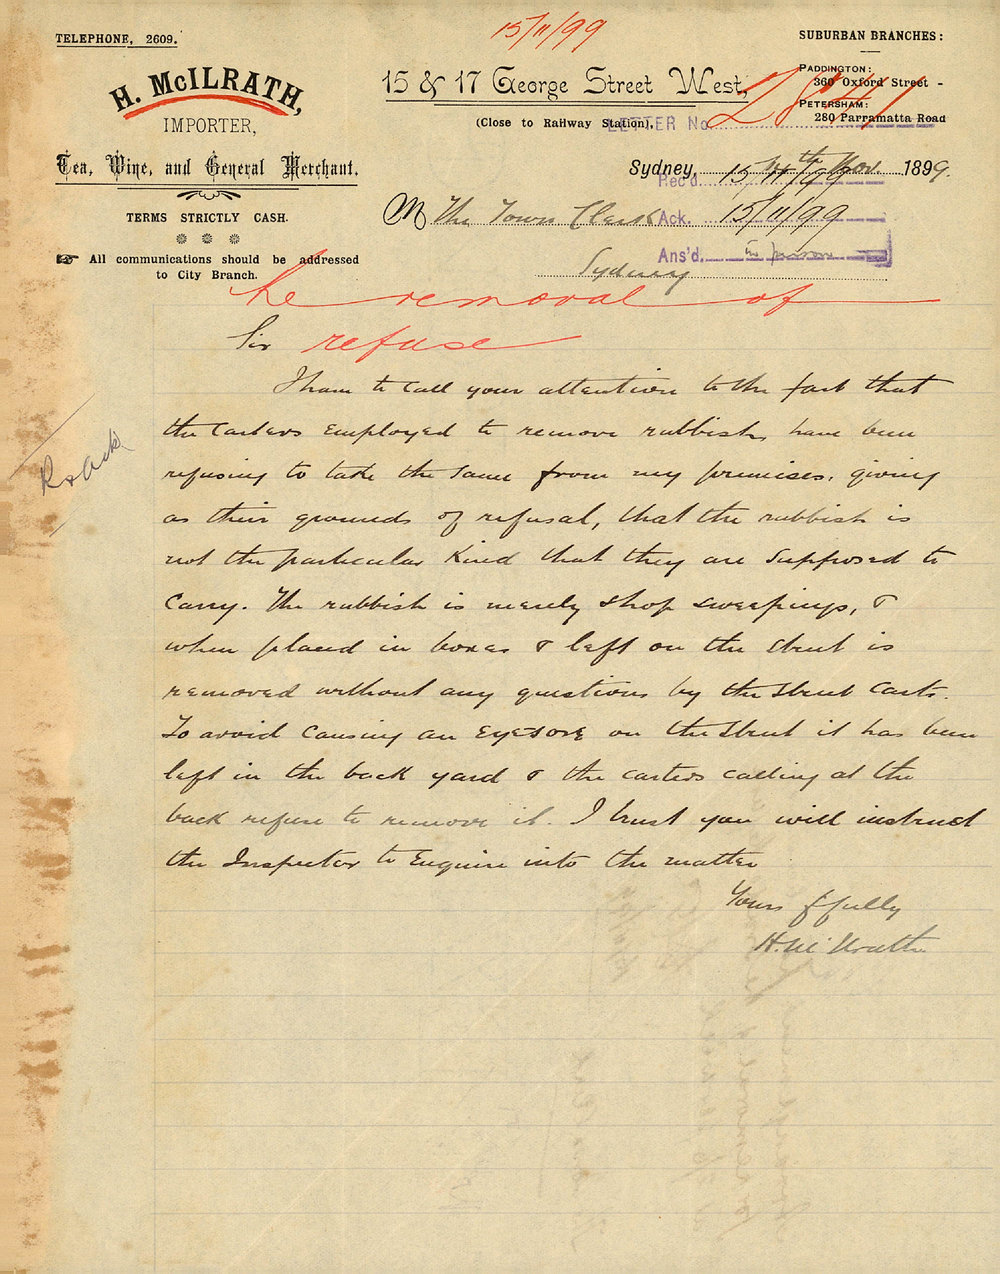 15/11/99
TELEPHONE, 2609.
SUBURBAN BRANCHES:
H. McILRATH,
IMPORTER,
Tea, Wine, and General Merchant.
TERMS STRICTLY CASH.
All communications should be addressed
to City Branch.
15 & 17 George Street West,
(Close to Railway Station),
PADDINGTON:
360 Oxford Street -
PETERSHAM:
280 Parramatta Road
LETTER No.
Sydney, 14th Nov. 1899.
Rec'd. 15/11/99
M The Town Clerk
Ack. 15/11/99
Ans'd. in person
Sydney
re removal of
refuse
Sir
I have to call your attention to the fact that
the carters employed to remove rubbish, have been
refusing to take the same from my premises, giving
as their grounds of refusal, that the rubbish is
not the particular kind that they are supposed to
carry. The rubbish is merely shop sweepings, &
when placed in boxes & left on the street is
removed without any questions by the street carts.
To avoid causing an eyesore on the street it has been
left in the back yard & the carters calling at the
back refuse to remove it. I trust you will instruct
the Inspector to enquire into the matter
Yours ffully
H. McIlrath